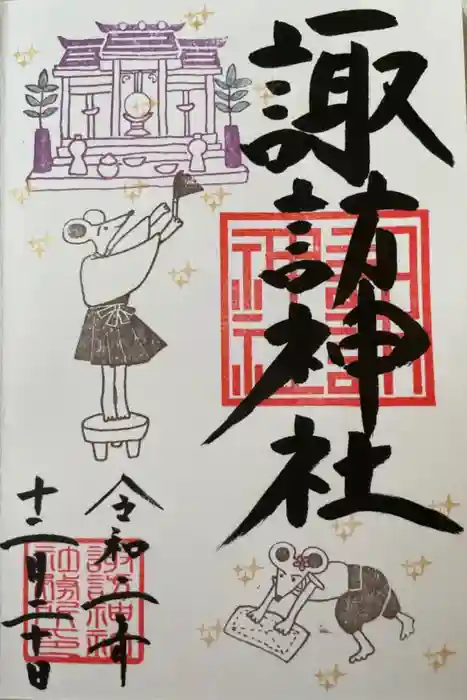 諏訪神社
諏訪
神社
令和二年
十二月二十日
諏訪神社
社務所印